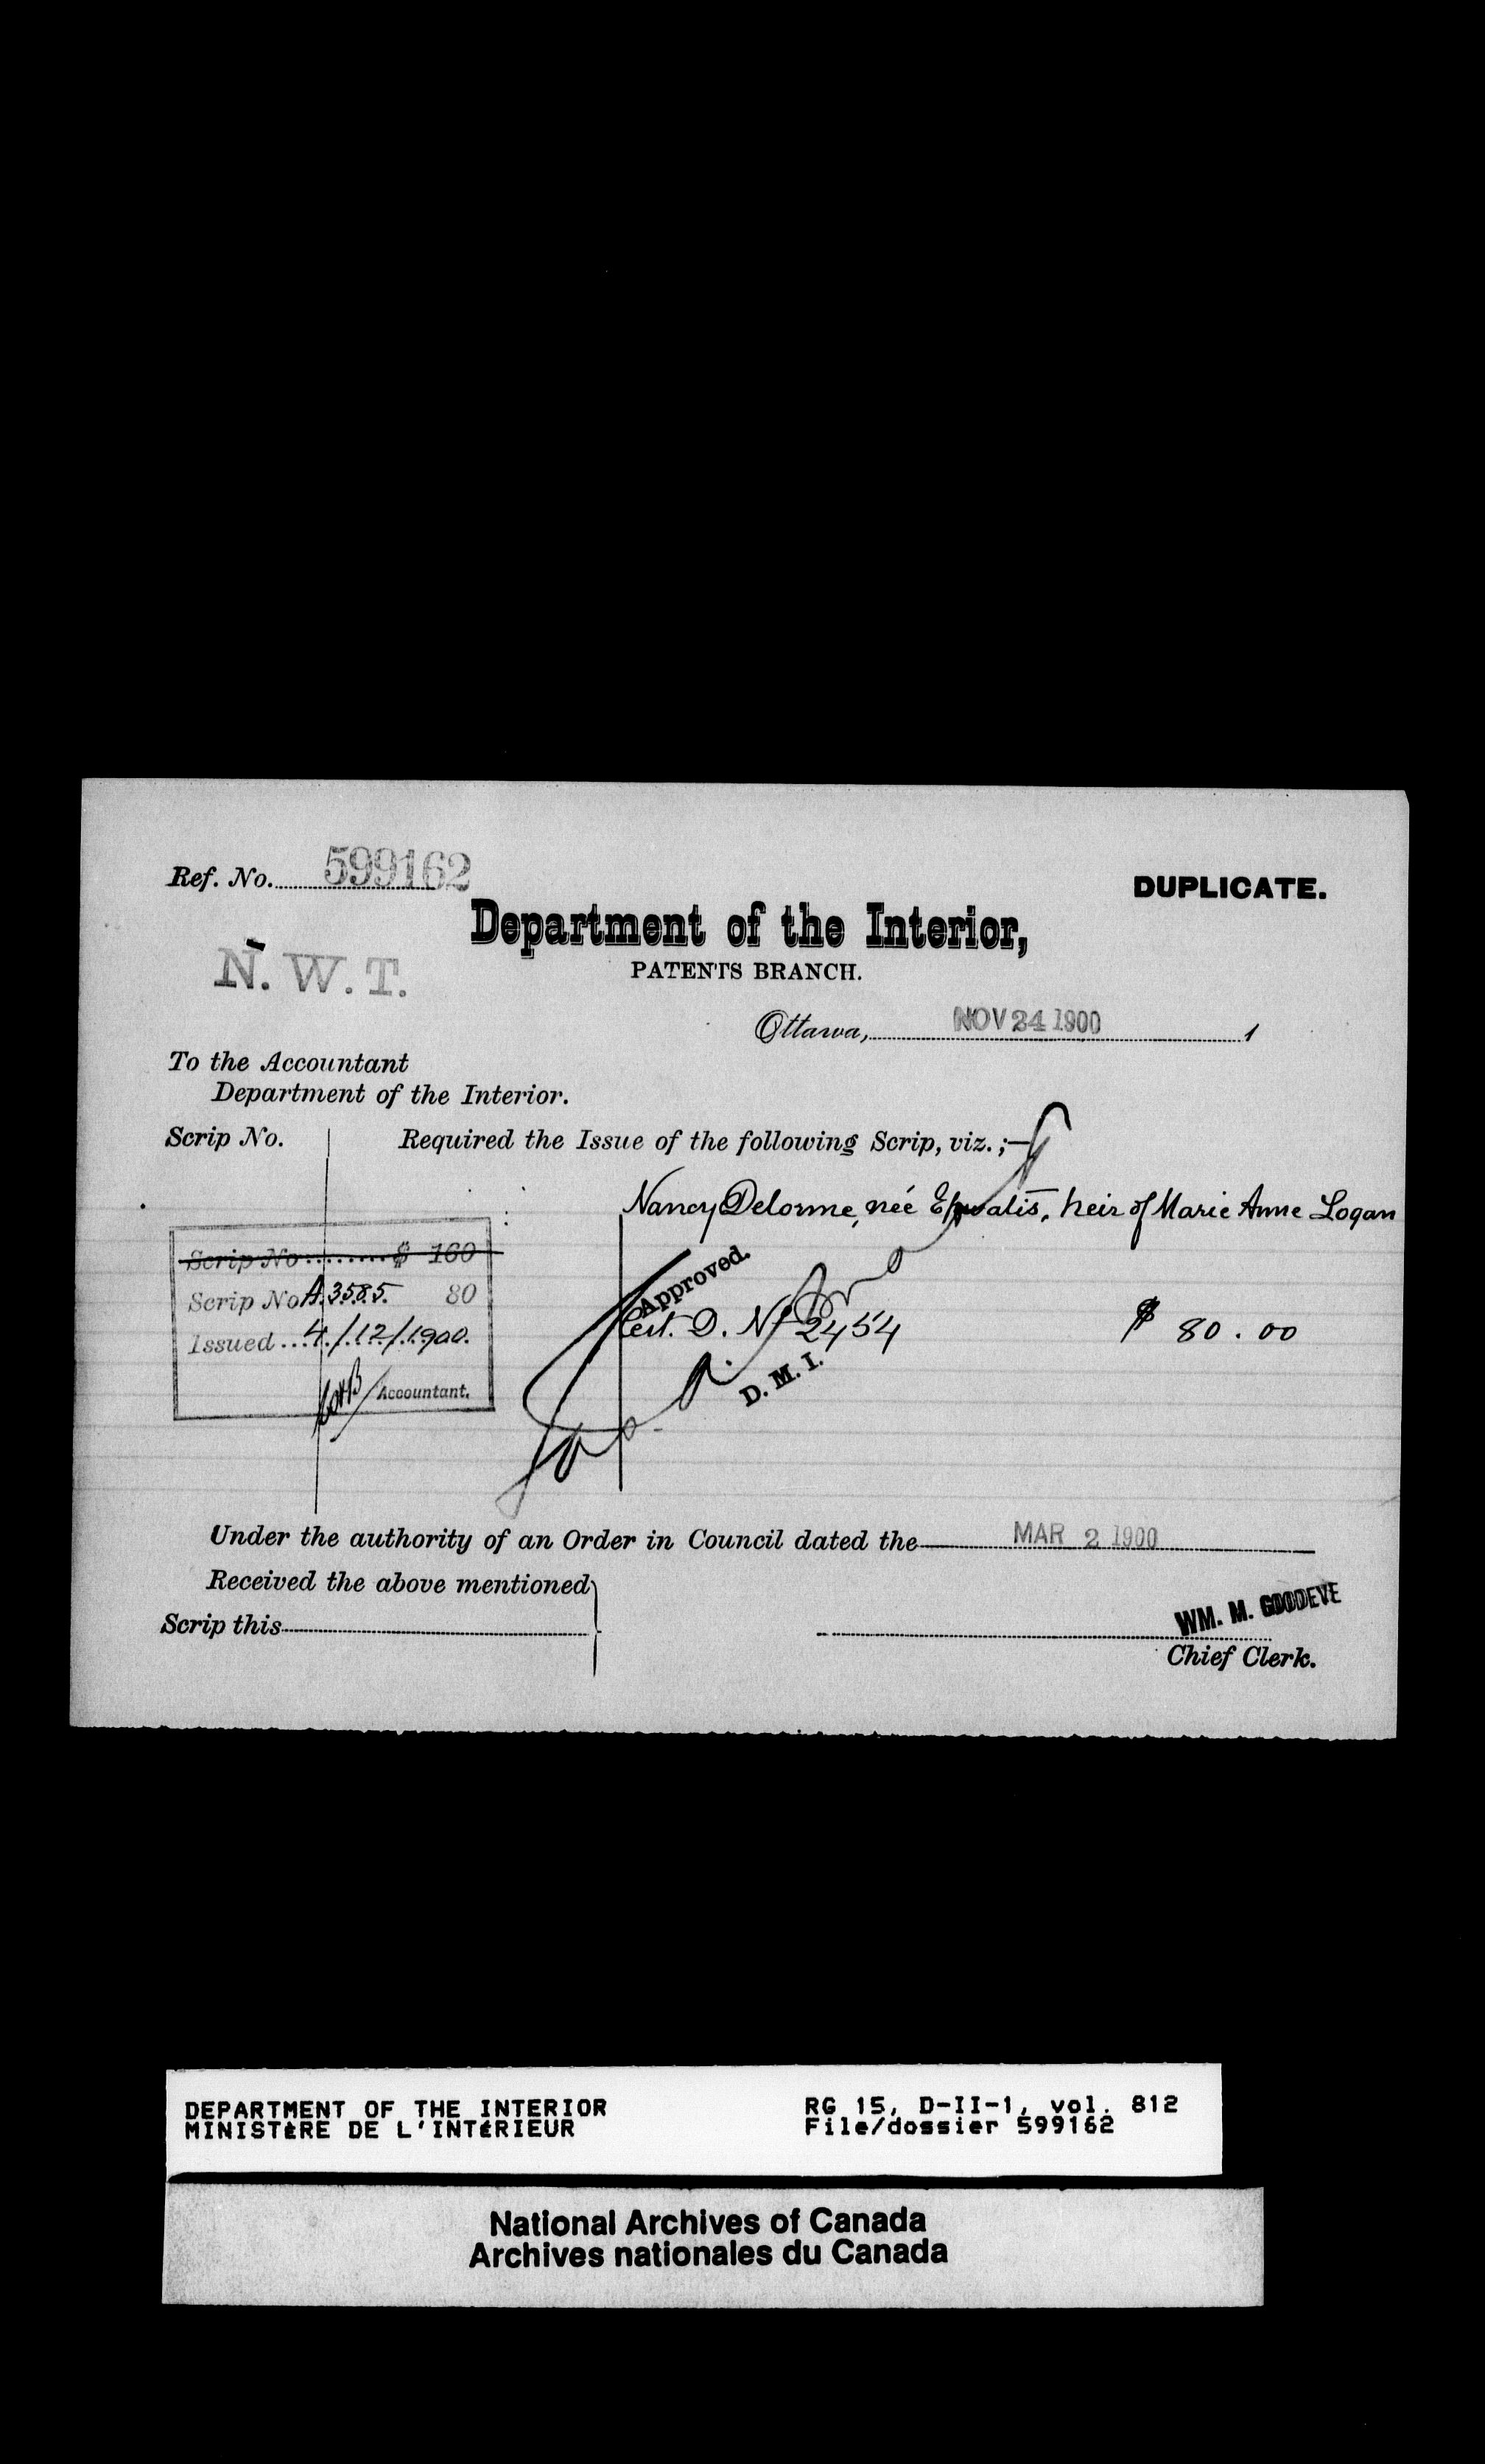 Ref. No. 599162
DUPLICATE.
Department of the Interior,
PATENTS BRANCH.
N. W. T.
Ottawa, NOV 24 1900 1
To the Accountant
Department of the Interior.
Scrip No. Required the Issue of the following Scrip, viz.;—
Nancy Delorme, née heir of Marie Anne Logan
Scrip No......... $ 160
Scrip No. A.3585. 80
Issued ... 4./.12/.1900.
Accountant.
Approved.
Cert. D. No 2454 $ 80.00
D. M. I.
Under the authority of an Order in Council dated the MAR 2 1900
Received the above mentioned
Scrip this
WM. M. GOODEVE
Chief Clerk.
DEPARTMENT OF THE INTERIOR RG 15, D-II-1, vol. 812
MINISTÈRE DE L'INTÉRIEUR File/dossier 599162
National Archives of Canada
Archives nationales du Canada